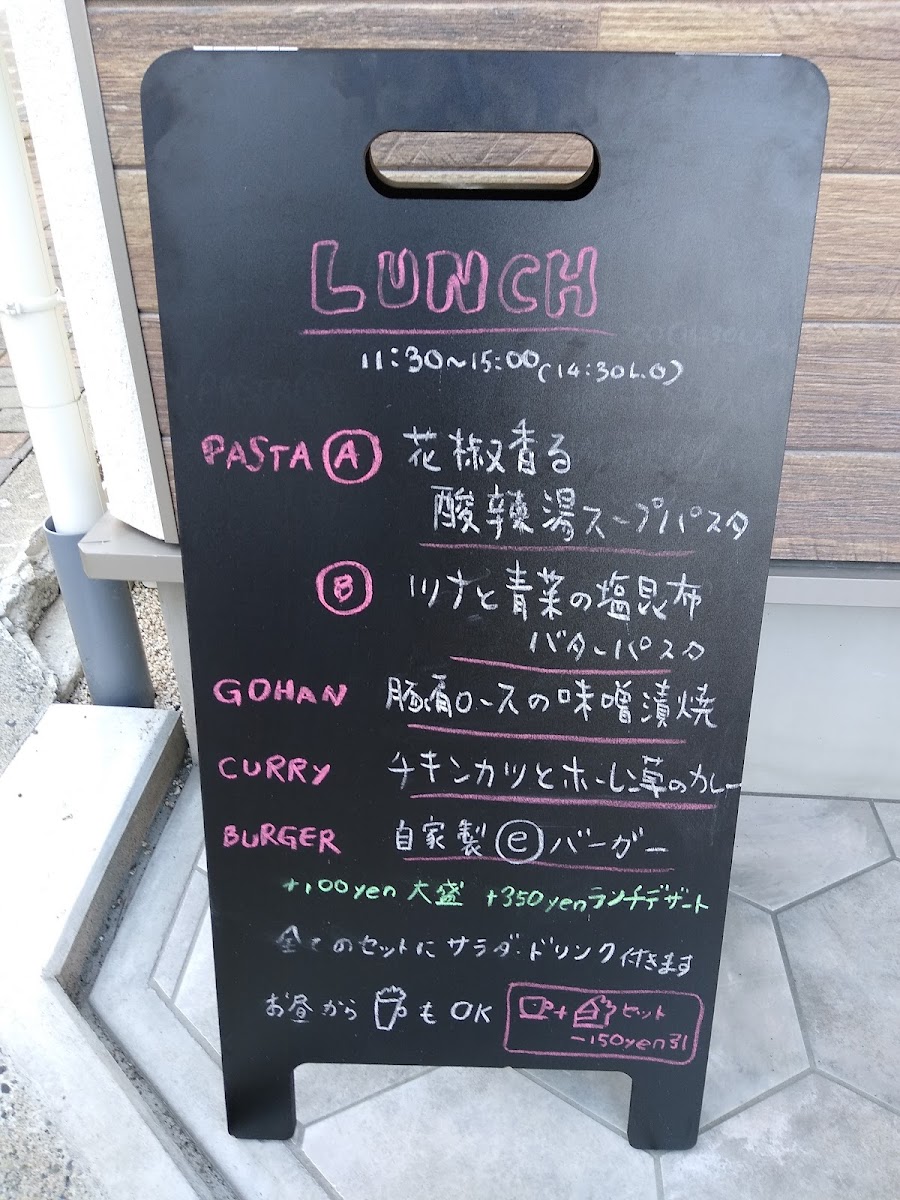 LUNCH
11:30~15:00(14:30L.O)
PASTA Ⓐ 花椒香る
酸辣湯スープパスタ
Ⓑ ツナと青菜の塩昆布
バターパスタ
GOHAN 豚肩ロースの味噌漬焼
CURRY チキンカツとホーレン草のカレー
BURGER 自家製ⓔバーガー
+100yen 大盛 +350yenランチデザート
全てのセットにサラダ・ドリンク付きます
お昼から もOK
+ セット
-150yen引